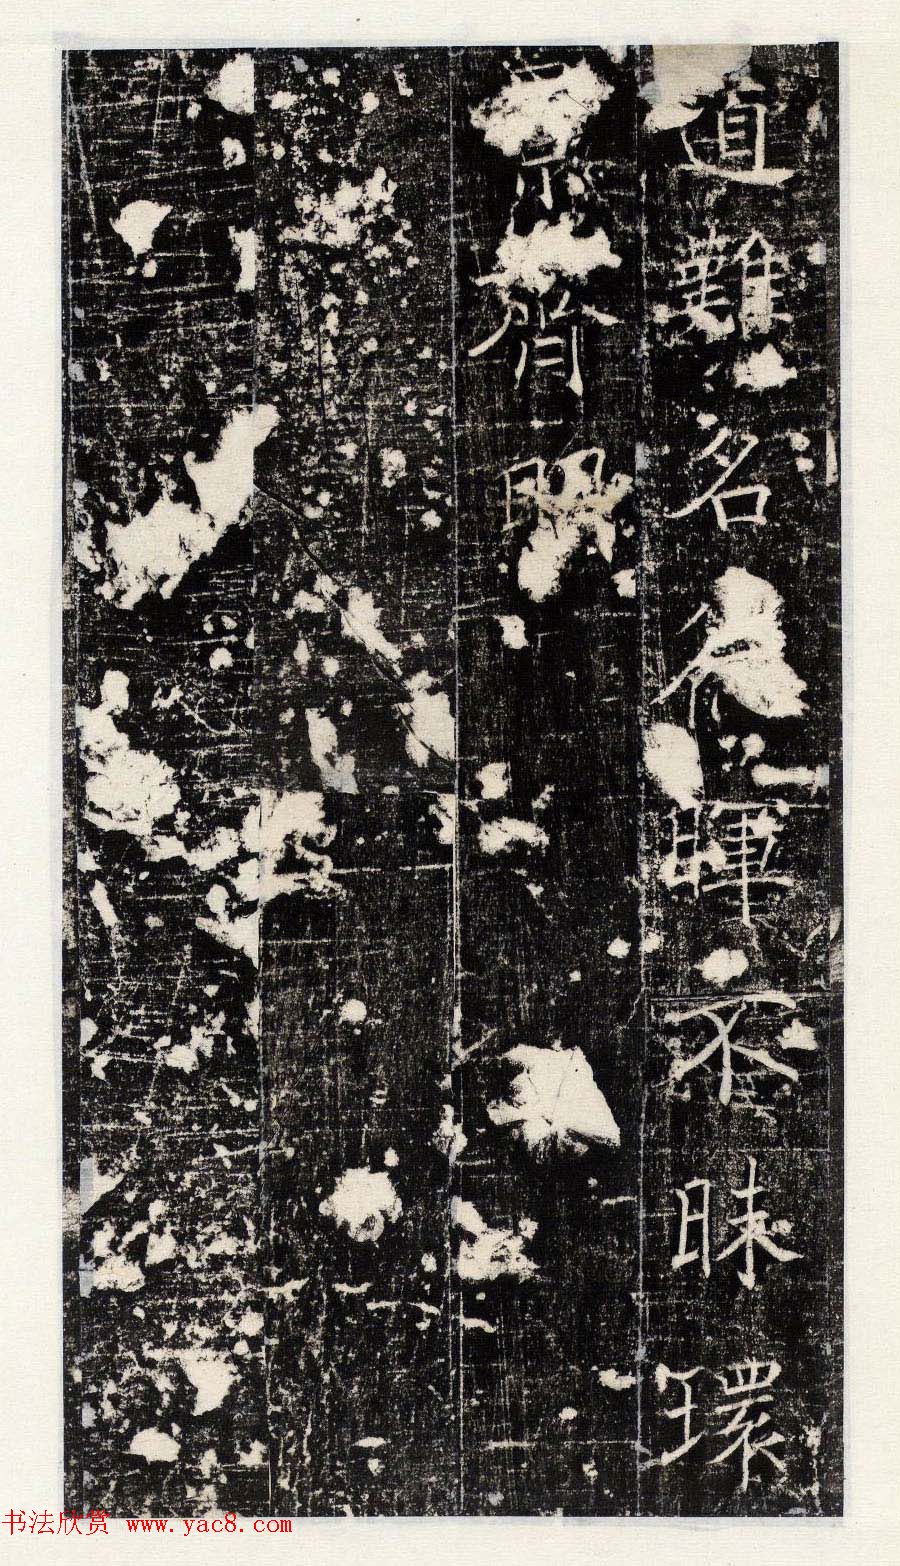 道難名微暉不昧環
景齊明
书法欣赏 www.yac8.com